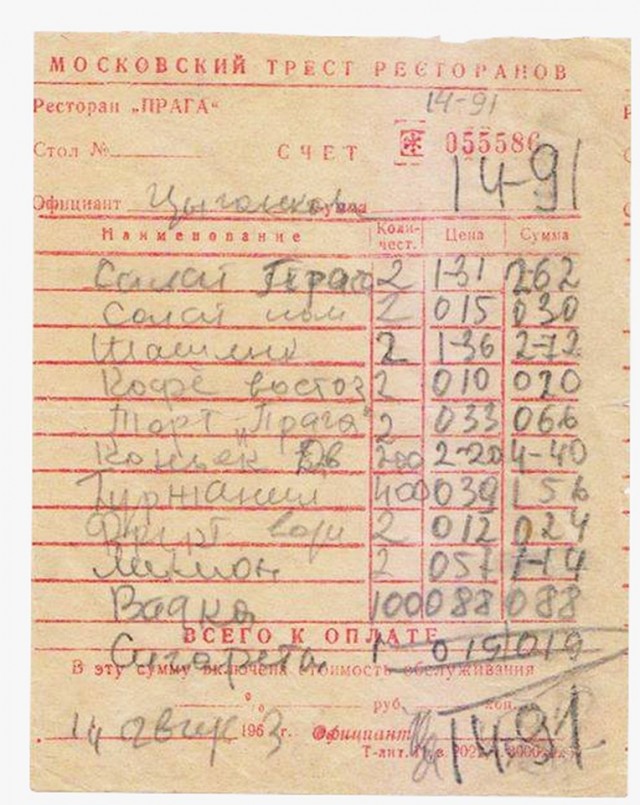 МОСКОВСКИЙ ТРЕСТ РЕСТОРАНОВ
Ресторан „ПРАГА“ 14-91
Стол №
СЧЕТ 055586
14-91
Официант Цыганкова
Наименование Коли-чест. Цена Сумма
Салат Прага 2 1-31 2 62
Салат пом 2 0 15 0 30
Шашлык 2 1-36 2-72
Кофе восточ 2 0 10 0 20
Торт „Прага“ 2 0 33 0 66
Коньяк 200 2-20 4-40
Гурджаани 400 0 39 1 56
Фрукт воды 2 0 12 0 24
2 0 57 1-14
Водка 100 0 88 0 88
ВСЕГО К ОПЛАТЕ
Сигареты 1 0 19 0 19
В эту сумму включена стоимость обслуживания
% руб. коп.
14 август 1963 г. Официант 14-91
Т-лит.